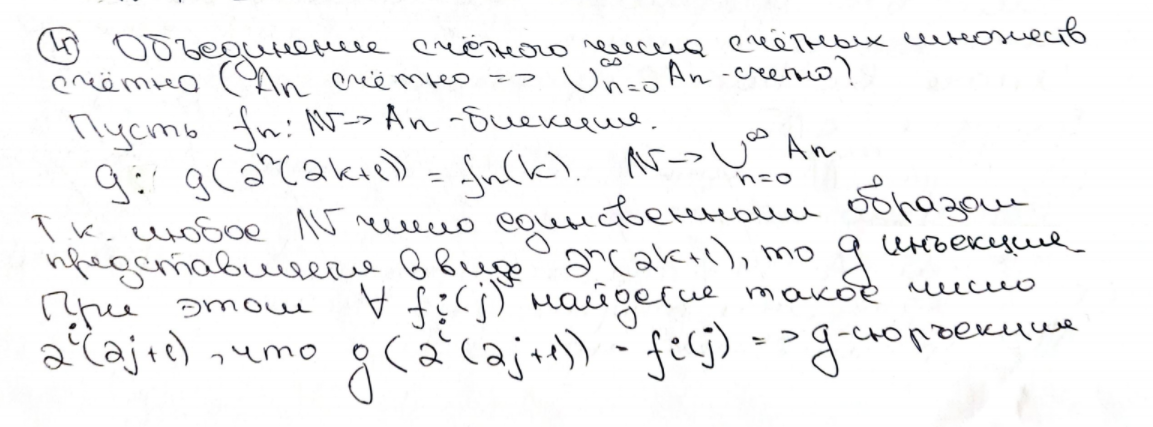 ④ Объединение счётного числа счётных множеств
счётно (An счётно => ∪_{n=0}^{∞} An - счетно)
Пусть fn: ℕ -> An - биекция.
g: g(2^n(2k+1)) = fn(k). ℕ -> ∪_{n=0}^{∞} An
Т.к. любое ℕ число единственным образом
представляется в виде 2^n(2k+1), то g инъекция
При этом ∀ fi(j) найдется такое число
2^i(2j+1), что g(2^i(2j+1)) - fi(j) => g-сюръекция